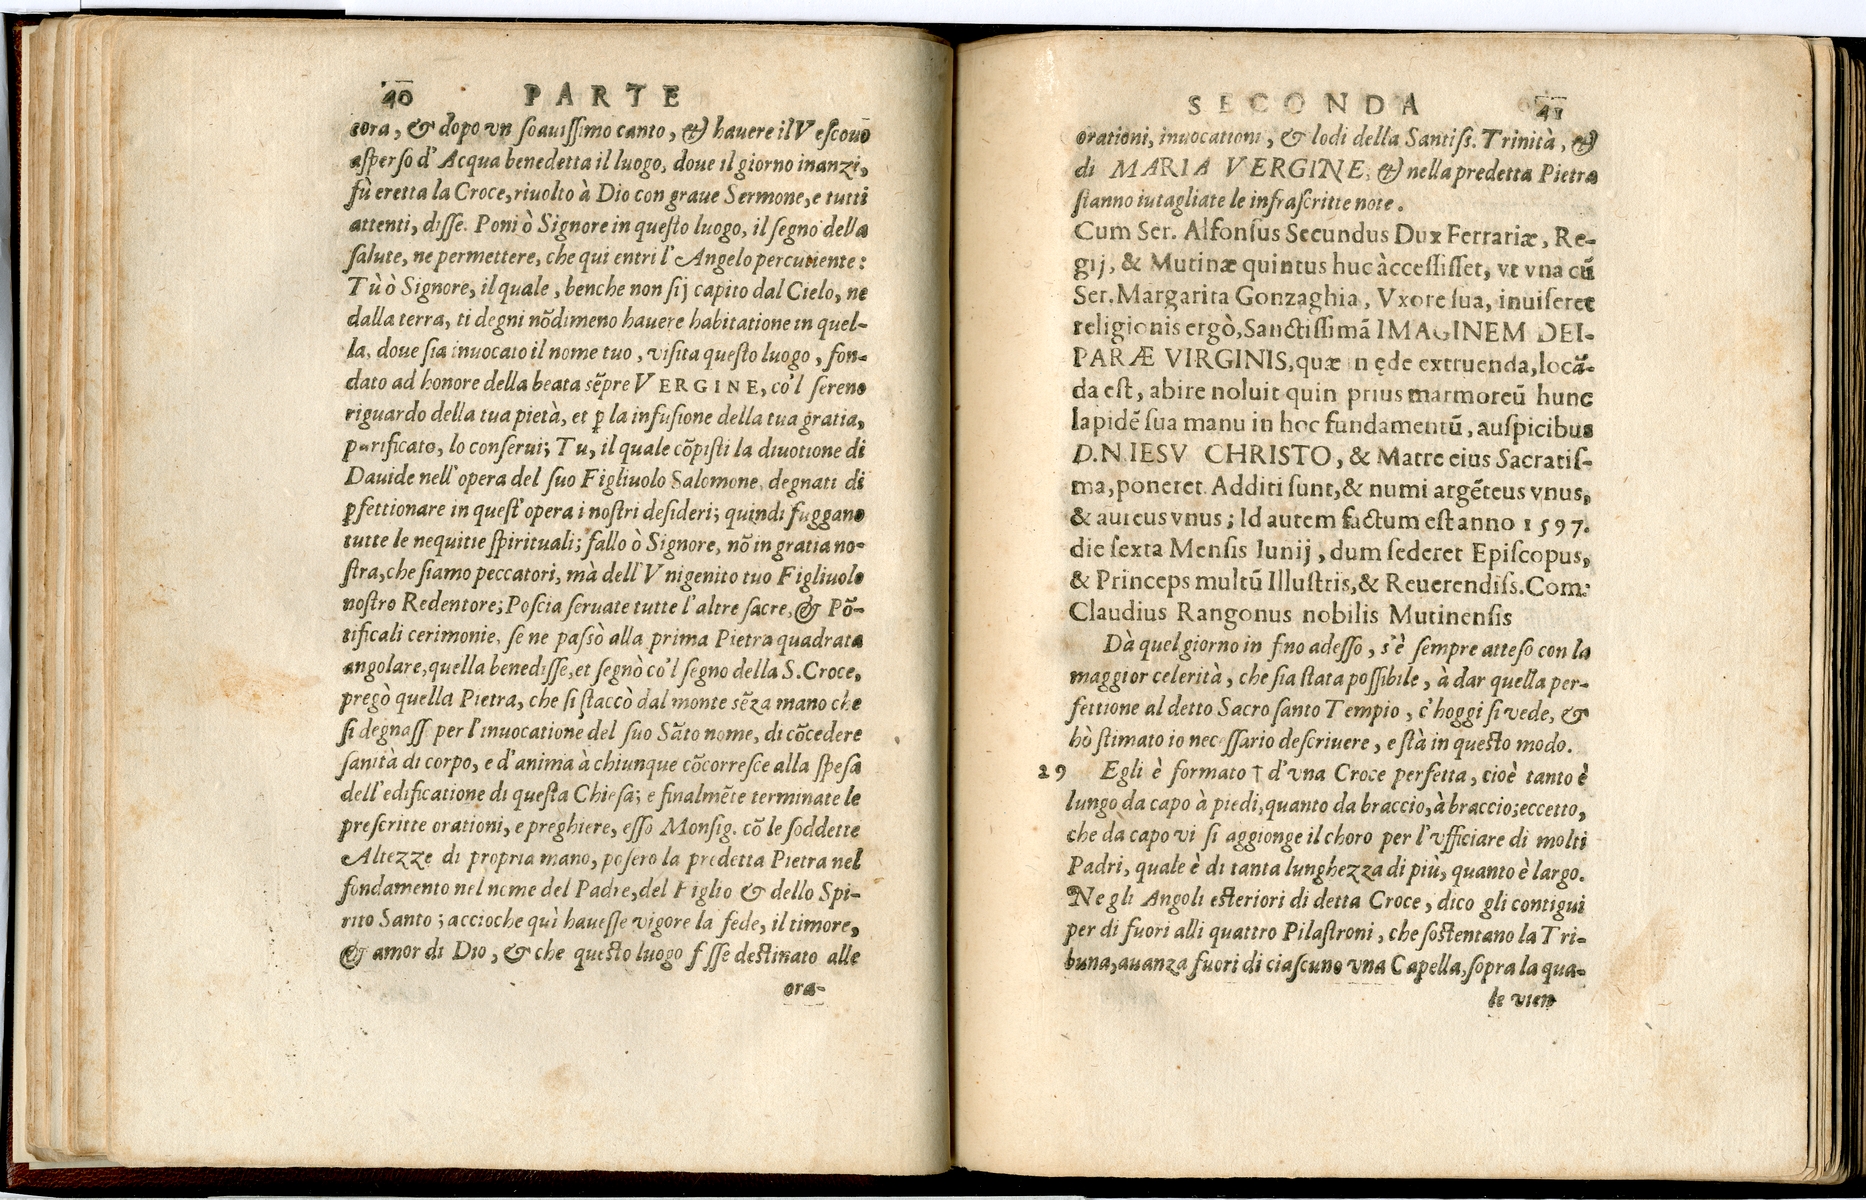 40 PARTE
cora, & dopo vn soauissimo canto, & hauere il Vescouo
asperso d'Acqua benedetta il luogo, doue il giorno inanzi,
fù eretta la Croce, riuolto à Dio con graue Sermone, e tutti
attenti, disse. Poni ò Signore in questo luogo, il segno della
salute, ne permettere, che qui entri l'Angelo percutiente:
Tù ò Signore, il quale, benche non sij capito dal Cielo, ne
dalla terra, ti degni nõdimeno hauere habitatione in quel-
la, doue sia inuocato il nome tuo, visita questo luogo, fon-
dato ad honore della beata sẽpre VERGINE, co'l sereno
riguardo della tua pietà, et ꝑ la infusione della tua gratia,
purificato, lo conserui; Tu, il quale cõpisti la diuotione di
Dauide nell'opera del suo Figliuolo Salomone, degnati di
ꝑfettionare in quest'opera i nostri desideri; quindi fuggano
tutte le nequitie spirituali; fallo ò Signore, nõ in gratia no-
stra, che siamo peccatori, mà dell'Vnigenito tuo Figliuolo
nostro Redentore; Poscia seruate tutte l'altre sacre, & Põ-
tificali cerimonie, se ne passò alla prima Pietra quadrata
angolare, quella benedisse, et segnò co'l segno della S. Croce,
pregò quella Pietra, che si staccò dal monte sẽza mano che
si degnass per l'inuocatione del suo Sãto nome, di cõcedere
sanità di corpo, e d'anima à chiunque cõcorresce alla spesa
dell'edificatione di questa Chiesa; e finalmẽte terminate le
prescritte orationi, e preghiere, esso Monsig. cõ le soddette
Altezze di propria mano, posero la predetta Pietra nel
fondamento nel nome del Padre, del Figlio & dello Spi-
rito Santo; accioche quì hauesse vigore la fede, il timore,
& amor di Dio, & che questo luogo f sse destinato alle
ora-
SECONDA 41
orationi, inuocationi, & lodi della Santiss. Trinità, &
di MARIA VERGINE, & nella predetta Pietra
stanno iutagliate le infrascritte note.
Cum Ser. Alfonsus Secundus Dux Ferrariæ, Re-
gij, & Mutinæ quintus huc àccessisset, vt vna cũ
Ser. Margarita Gonzaghia, Vxore sua, inuiseret
religionis ergò, Sanctissimã IMAGINEM DEI-
PARÆ VIRGINIS, quæ in ęde extruenda, locã-
da est, abire noluit quin prius marmoreũ hunc
lapidẽ sua manu in hoc fundamentũ, auspicibus
D.N. IESV CHRISTO, & Matre eius Sacratis-
ma, poneret. Additi sunt, & numi argẽteus vnus,
& aureus vnus; Id autem factum est anno 1597.
die sexta Mensis Iunij, dum sederet Episcopus,
& Princeps multũ Illustris, & Reuerendiss. Com:
Claudius Rangonus nobilis Mutinensis
Dà quel giorno in fino adesso, s'è sempre atteso con la
maggior celerità, che sia stata possibile, à dar quella per-
fettione al detto Sacro santo Tempio, c'hoggi si vede, &
hò stimato io necessario descriuere, e stà in questo modo.
29 Egli è formato † d'vna Croce perfetta, cioè tanto è
lungo da capo à piedi, quanto da braccio, à braccio; eccetto,
che da capo vi si aggionge il choro per l'vfficiare di molti
Padri, quale è di tanta lunghezza di più, quanto è largo.
Ne gli Angoli esteriori di detta Croce, dico gli contigui
per di fuori alli quattro Pilastroni, che sostentano la Tri-
buna, auanza fuori di ciascuno vna Capella, sopra la qua-
le vien